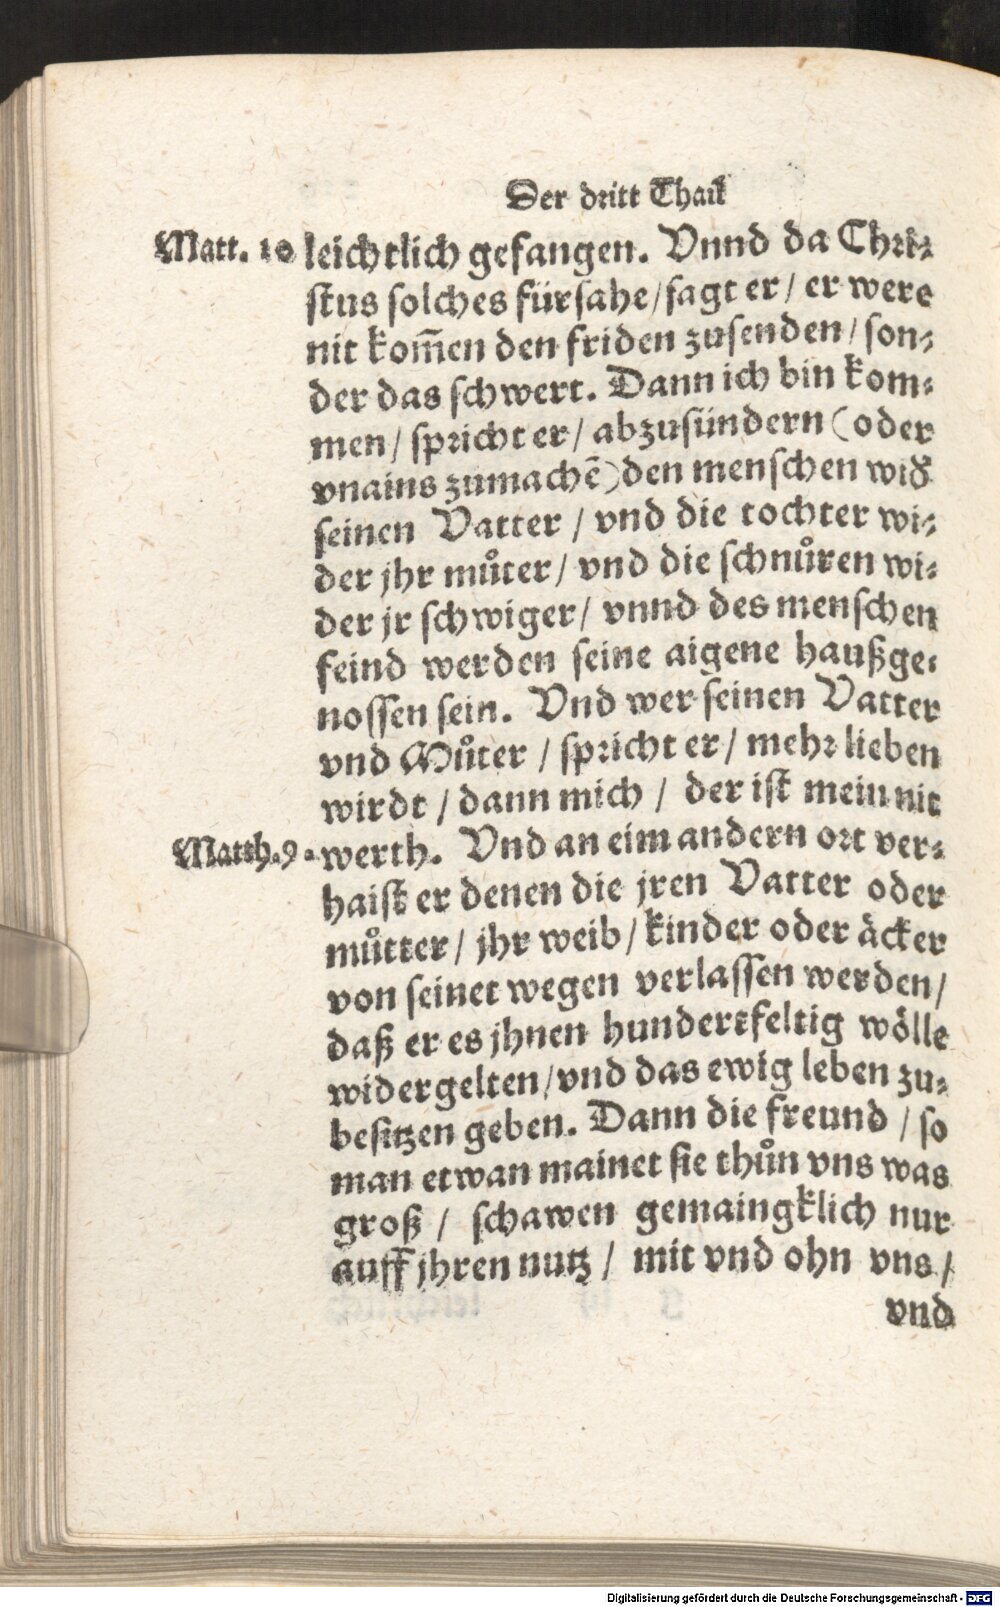 Der dritt Thail
Matt. 10 leichtlich gefangen. Vnnd da Chri⸗
stus solches fürsahe/ sagt er/ er were
nit kom̃en den friden zusenden/ son⸗
der das schwert. Dann ich bin kom⸗
men/ spricht er/ abzusündern (oder
vnains zumachẽ) den menschen wid̕
seinen Vatter / vnd die tochter wi⸗
der jhr můter/ vnd die schnůren wi⸗
der jr schwiger/ vnnd des menschen
feind werden seine aigene haußge⸗
nossen sein. Vnd wer seinen Vatter
vnd Můter / spricht er/ mehr lieben
wirdt / dann mich / der ist mein nit
Matth. 9. werth. Vnd an eim andern ort ver⸗
haist er denen die jren Vatter oder
můtter/ jhr weib/ kinder oder äcker
von seinet wegen verlassen werden/
daß er es jhnen hundertfeltig wölle
widergelten/ vnd das ewig leben zu⸗
besitzen geben. Dann die freund / so
man etwan mainet sie thůn vns was
groß / schawen gemaingklich nur
auff jhren nutz / mit vnd ohn vns /
vnd
Digitalisierung gefördert durch die Deutsche Forschungsgemeinschaft - DFG